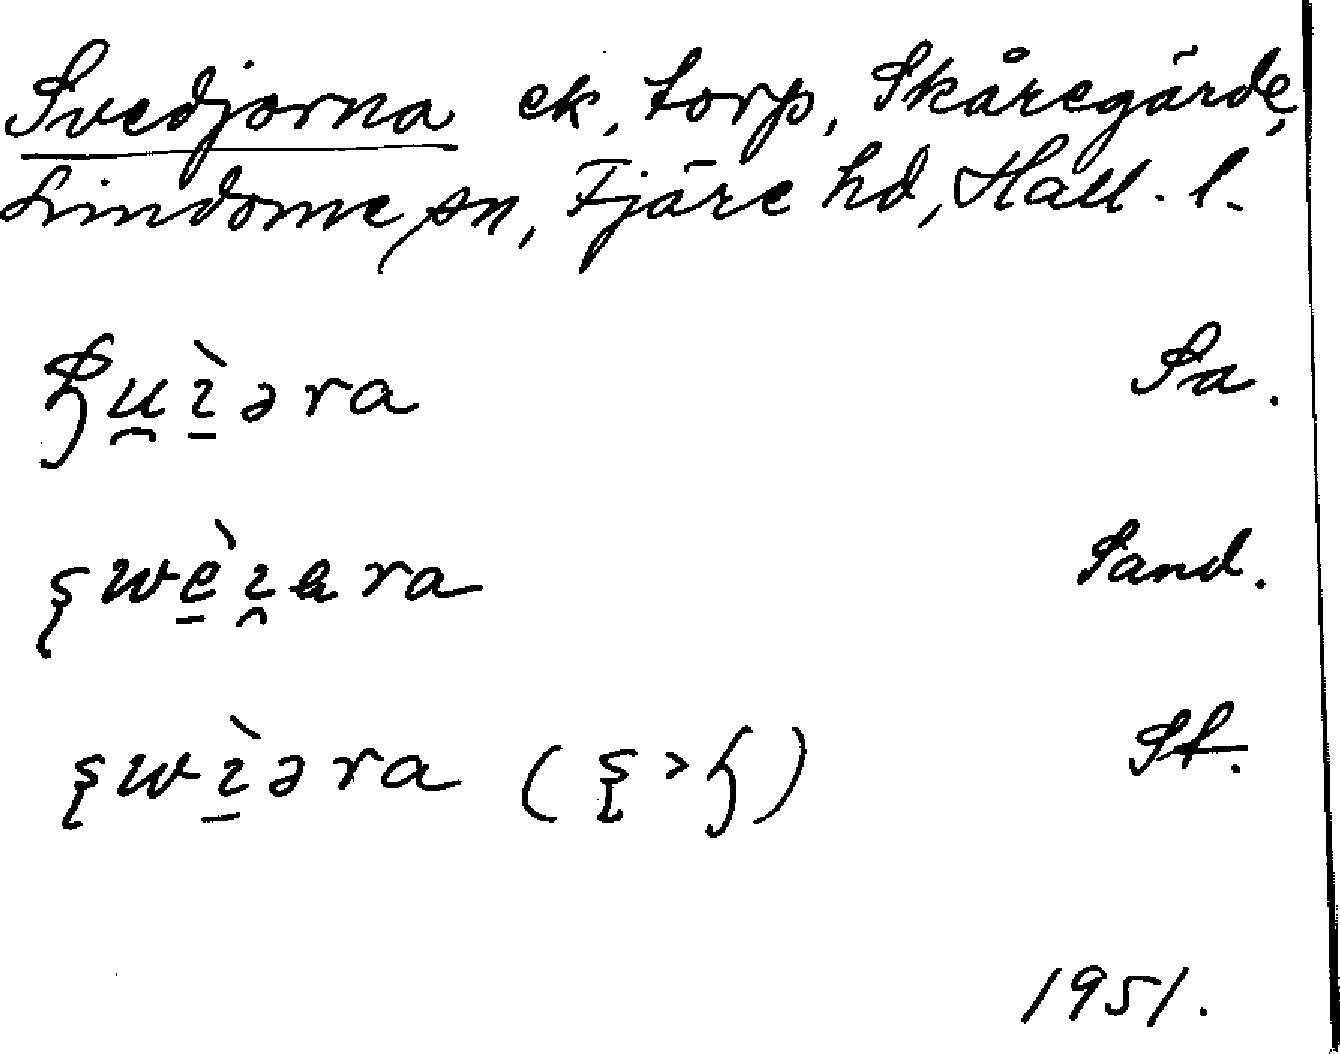 Svedjorna ek, torp, Skåregärde,
Lindome sn, Fjäre hd, Hall. l.
ɧu̯ı̱̀əra Sa.
ʂwè̱ı̯ɐra Sand.
ʂwı̱̀əra (ʂ>ɧ) St.
1951.